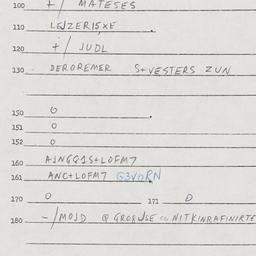 100 +/ MATESES
110 LEJZER15XE
120 +/ JUDL
130 DEROREMER S+VESTERS ZUN
150 0
151 0
152 0
160 A1NGG1S+LOFM7
161 ANC+LOFM7 G3VORN
170 0 171 0
180 -/MOJD @ GROBUSE ∞ NITKINRAFINIRTE